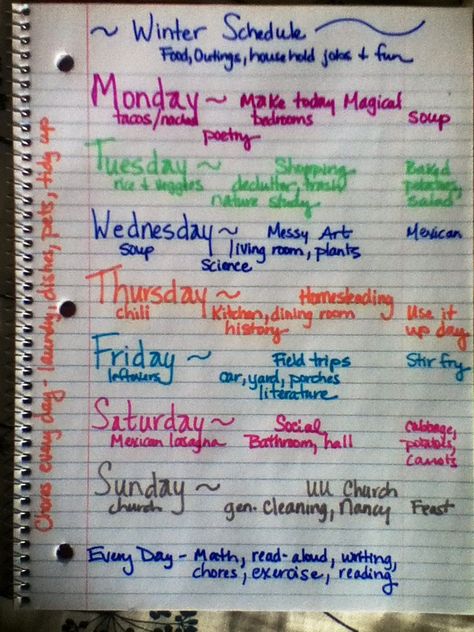 ~ Winter Schedule
Food, Outings, household jobs + fun
Monday ~ Make today Magical
tacos/nachos bedrooms soup
poetry
Tuesday ~ Shopping Baked
rice + veggies declutter, trash potatoes,
nature study salad
Wednesday ~ Messy Art Mexican
soup living room, plants
science
Thursday ~ Homesteading Use it
chili Kitchen, dining room up day
history
Friday ~ Field trips Stir fry
leftovers car, yard, porches
literature
Saturday ~ Social cabbage,
Mexican lasagna Bathroom, hall potatoes,
carrots
Sunday ~ UU Church
church gen. cleaning, Nancy Feast
Every Day - Math, read-aloud, writing,
chores, exercise, reading
Chores every day - laundry, dishes, pets, tidy up